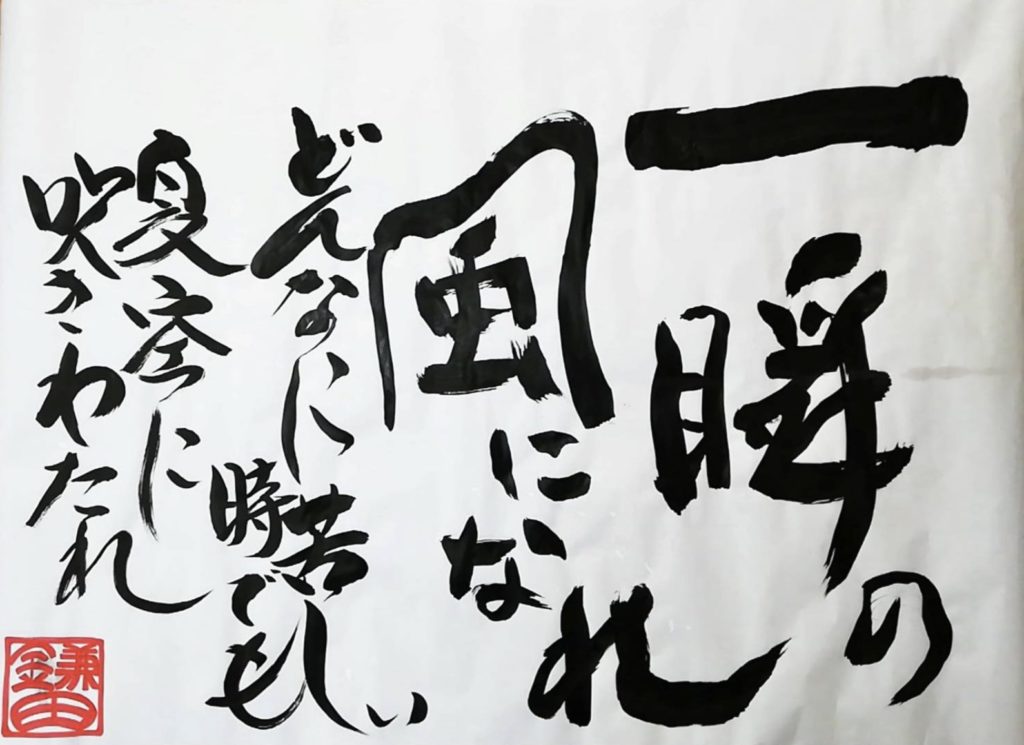 一瞬の
風になれ
どんなに苦しい
時でも
夏空に
吹きわたれ
鎌田